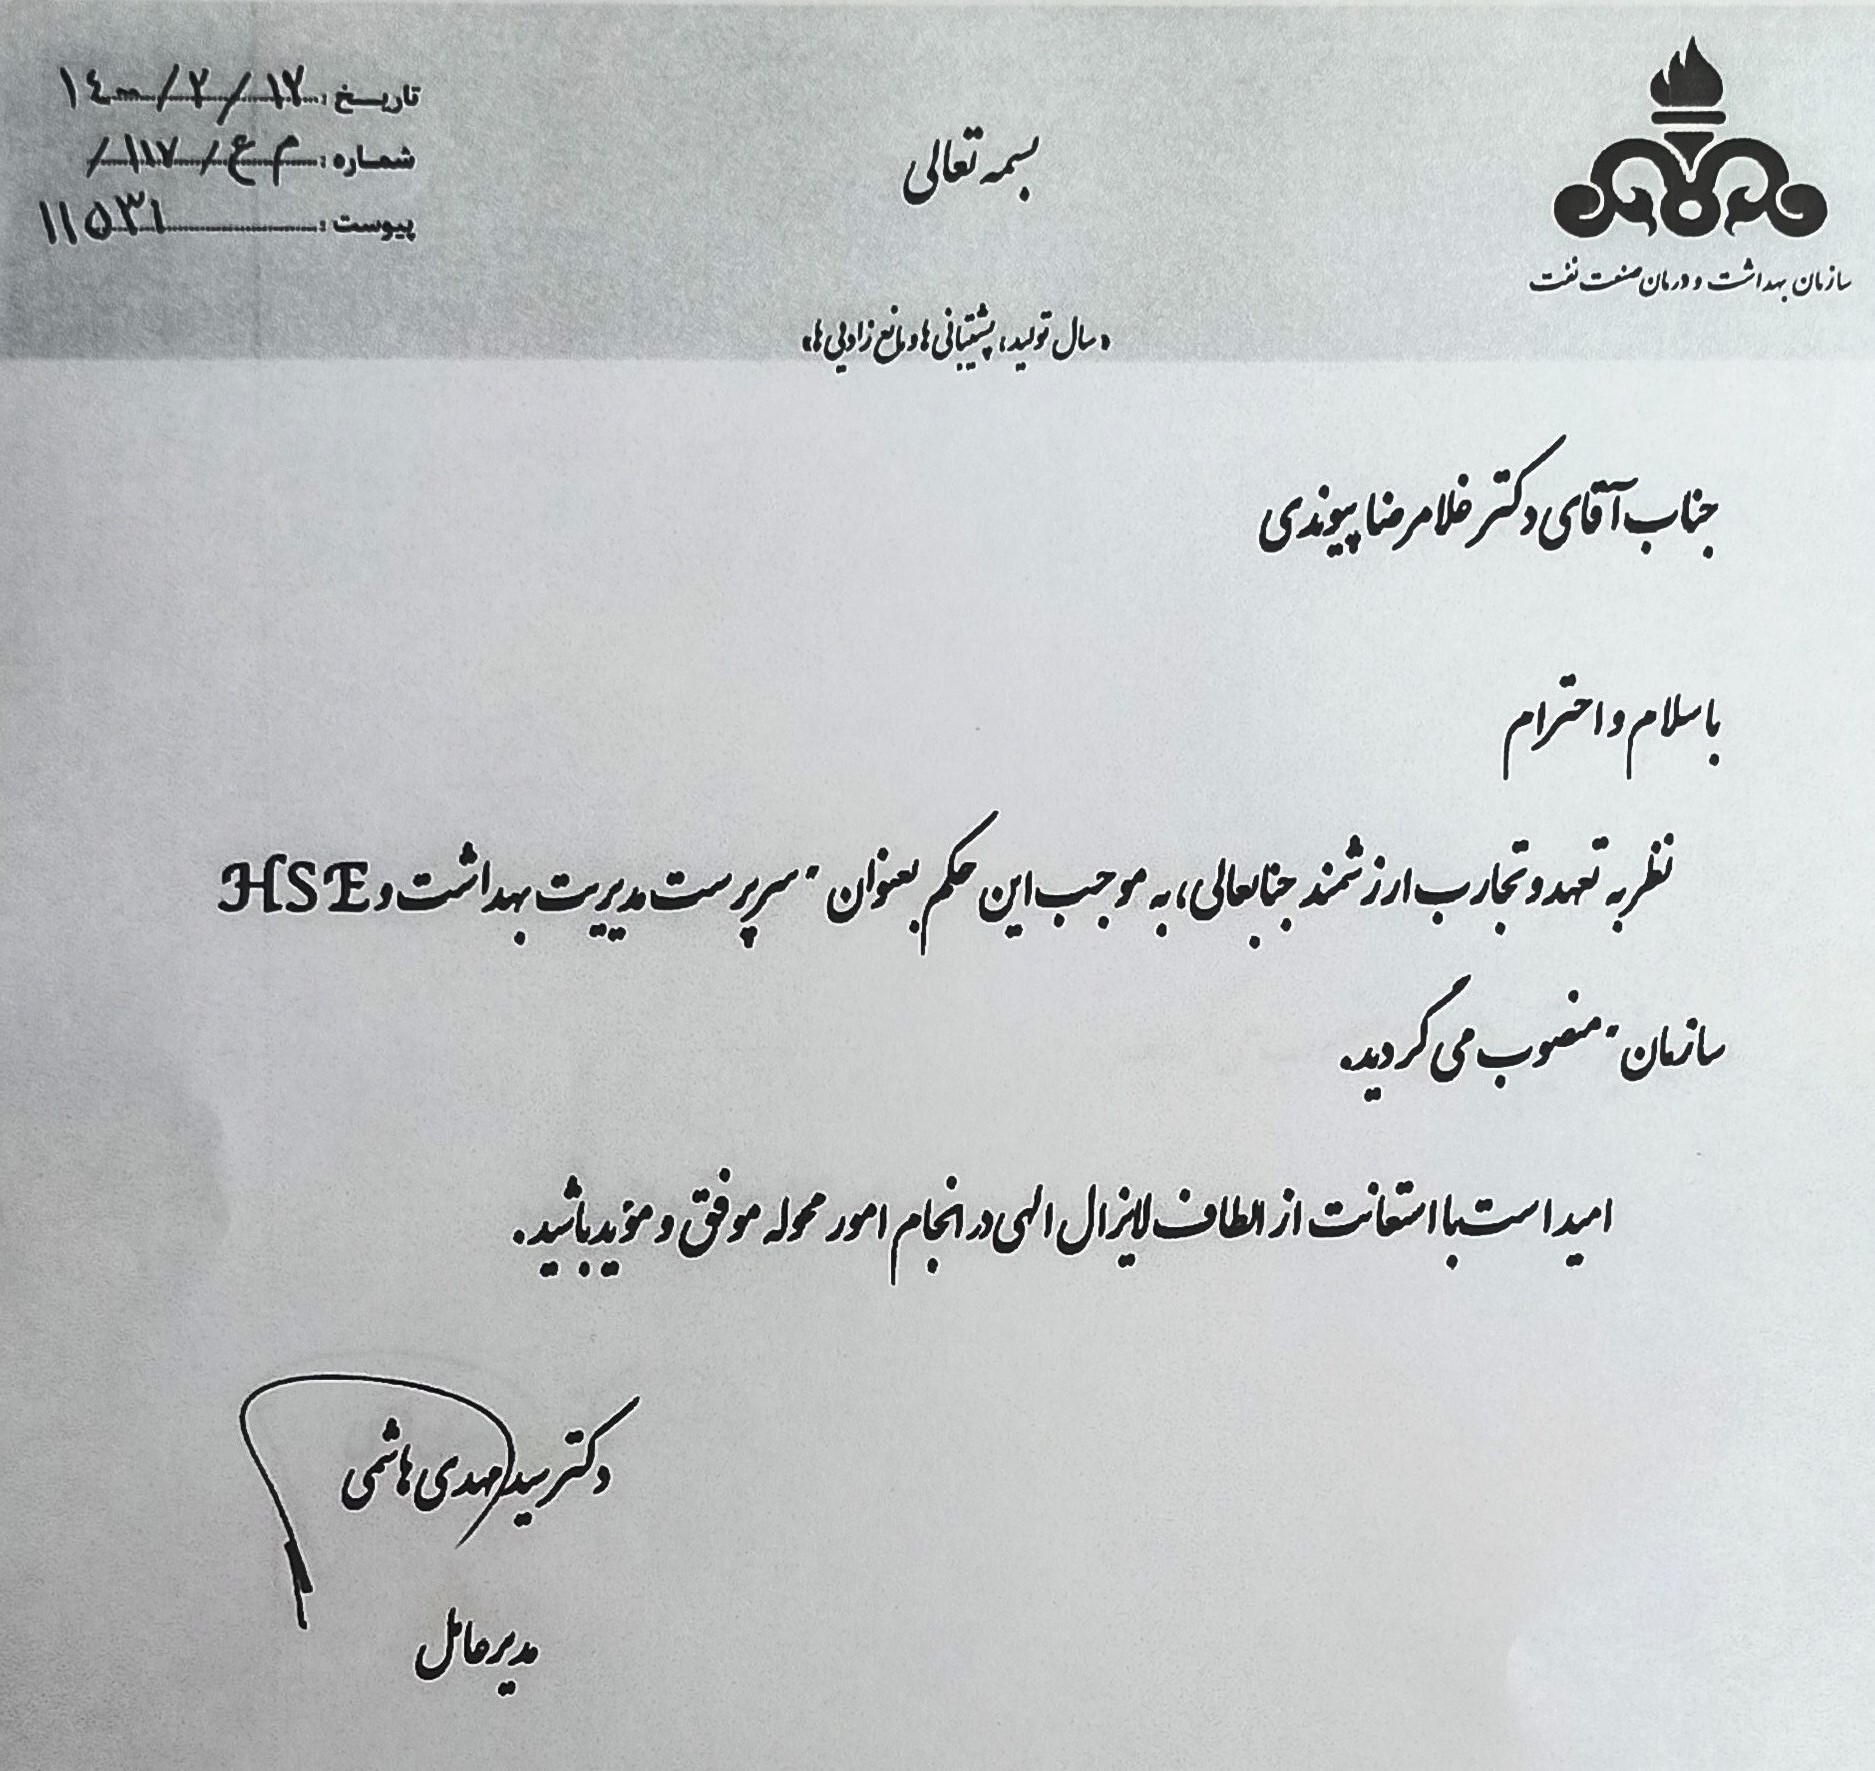 سازمان بهداشت و درمان صنعت نفت
بسمه تعالی
تاریخ: ۱۴۰۰/۲/۱۲
شماره: م ع/۱۱۷/
پیوست: ۱۱۵۳۱
«سال تولید، پشتیبانی ها و مانع زدایی ها»
جناب آقای دکتر غلامرضا پیوندی
با سلام و احترام
نظر به تعهد و تجارب ارزشمند جنابعالی، به موجب این حکم بعنوان "سرپرست مدیریت بهداشت و HSE
سازمان" منصوب می گردید.
امید است با استعانت از الطاف لایزال الهی در انجام امور محوله موفق و مؤید باشید.
دکتر سید مهدی هاشمی
مدیرعامل